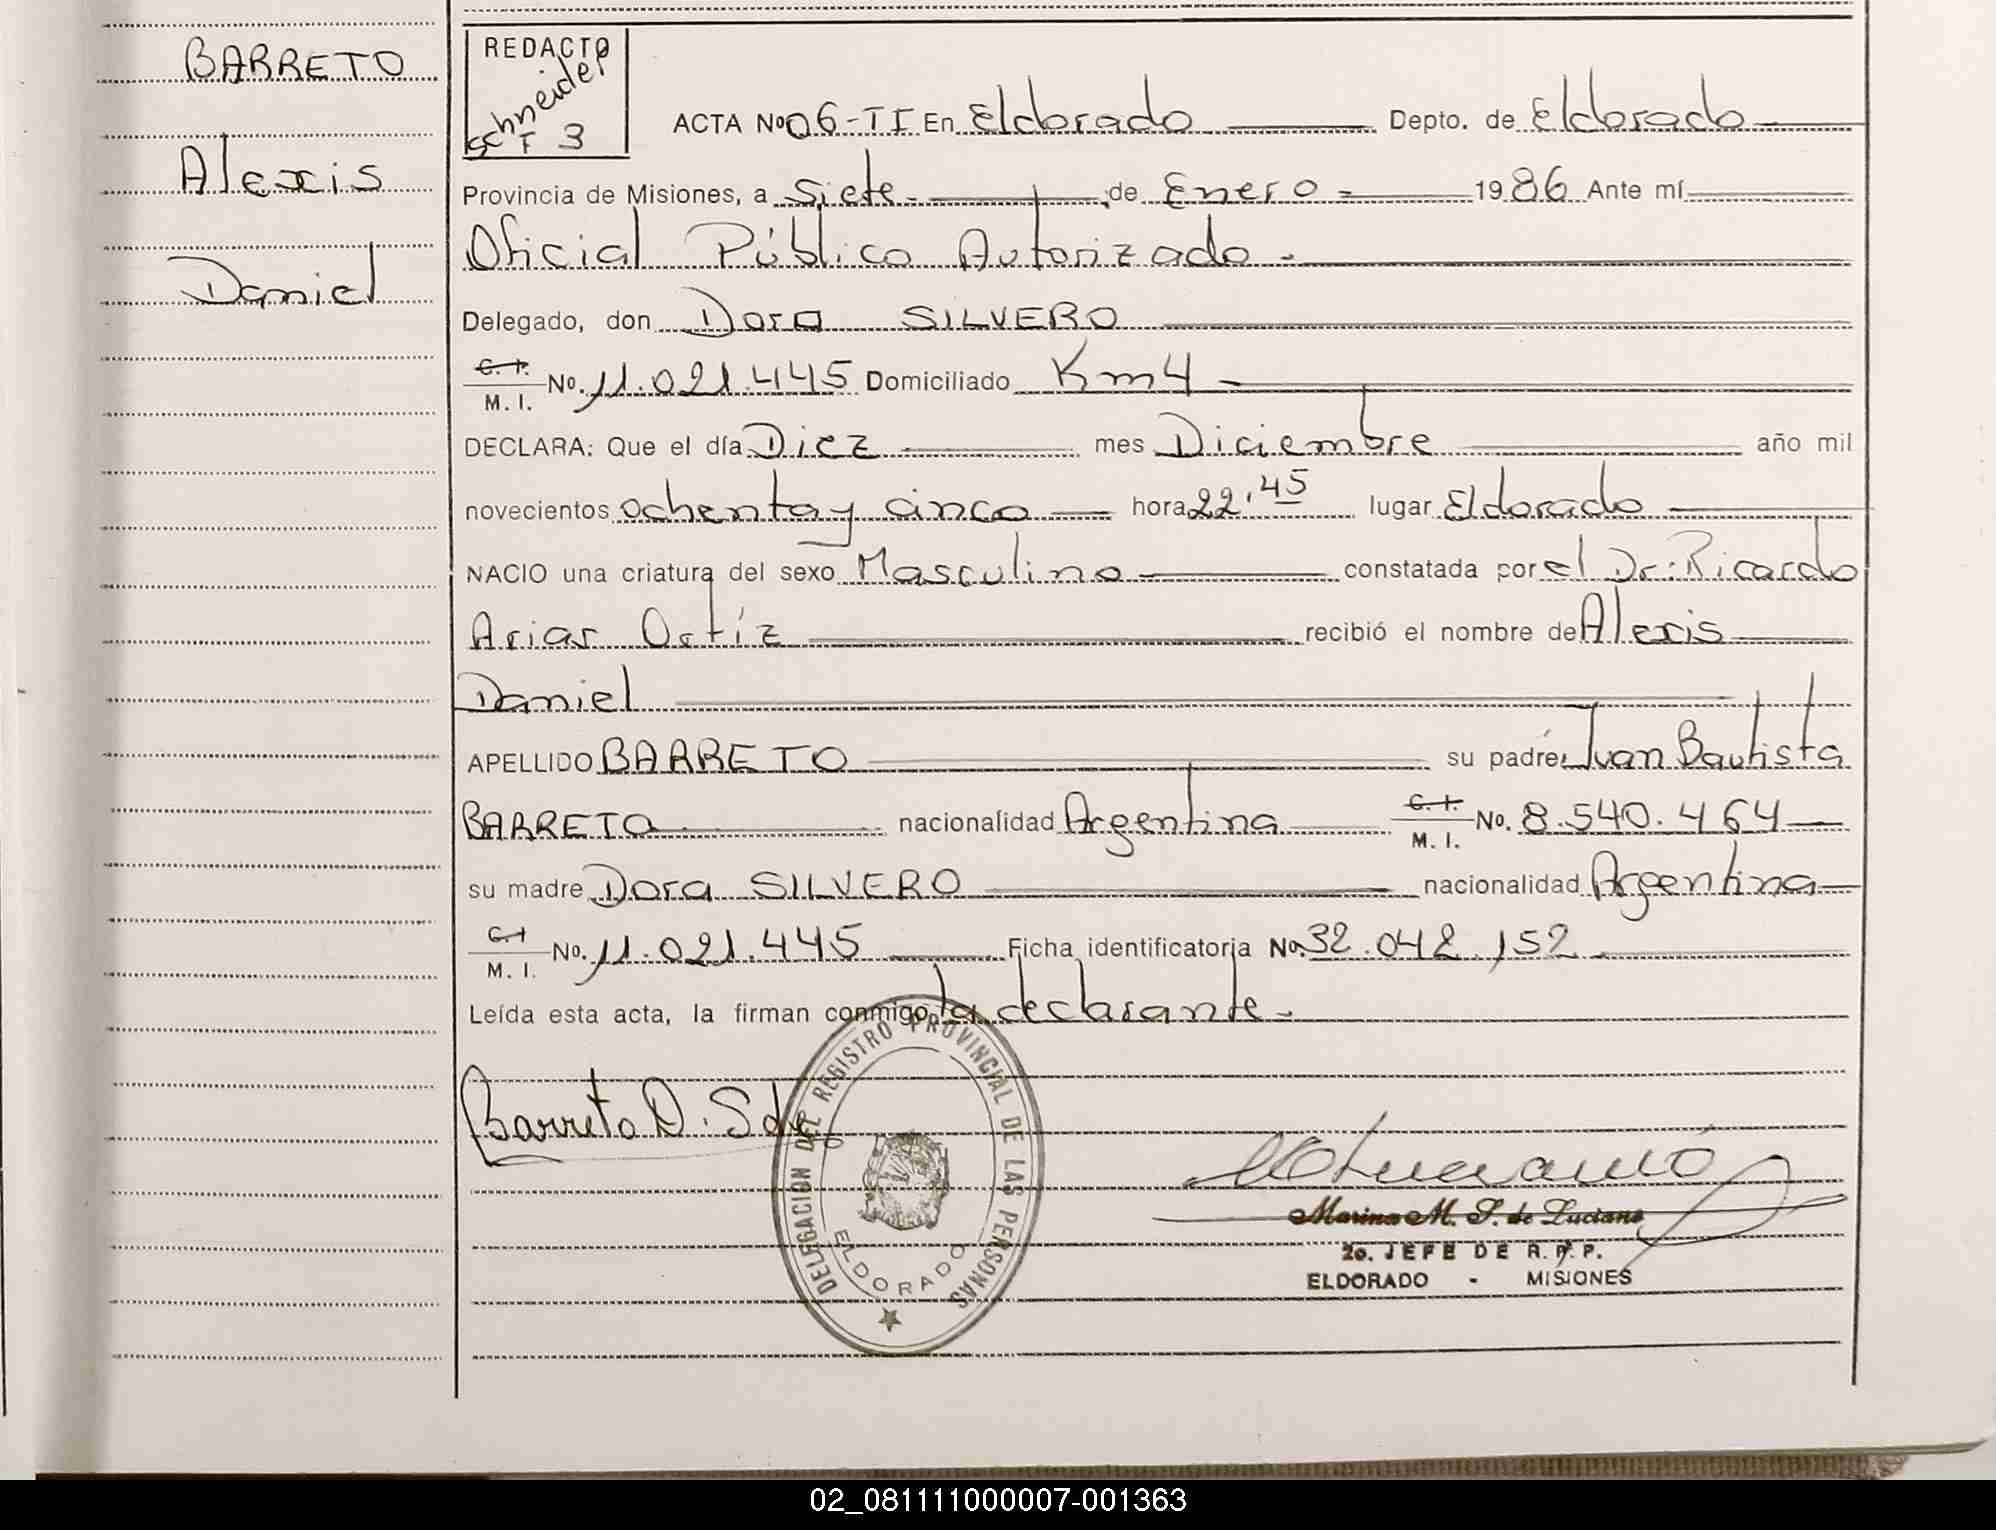 BARRETO
Alexis
Daniel
REDACTO
Schneider
F 3
ACTA Nº 06-TI En Eldorado Depto. de Eldorado
Provincia de Misiones, a Siete.- de Enero - 1986 Ante mí
Oficial Público Autorizado.-
Delegado, don Dora SILVERO
C. I.
M. I. No. 11.021.445 Domiciliado Km 4 -
DECLARA: Que el día Diez mes Diciembre año mil
novecientos ochenta y cinco hora 22.45 lugar Eldorado
NACIO una criatura del sexo Masculino constatada por el Dr: Ricardo
Arias Ortíz recibió el nombre de Alexis
Daniel
APELLIDO BARRETO su padre Juan Bautista
BARRETO nacionalidad Argentina C. I.
M. I. No. 8.540.464
su madre Dora SILVERO nacionalidad Argentina
C. I
M. I. No. 11.021.445 Ficha identificatoria No. 32.042.152
Leída esta acta, la firman conmigo la declarante.-
Barreto D. S de
DELEGACION DEL REGISTRO PROVINCIAL DE LAS PERSONAS
ELDORADO
Marina M. S. de Luciano
2o. JEFE DE R. P. P.
ELDORADO - MISIONES
02_081111000007-001363